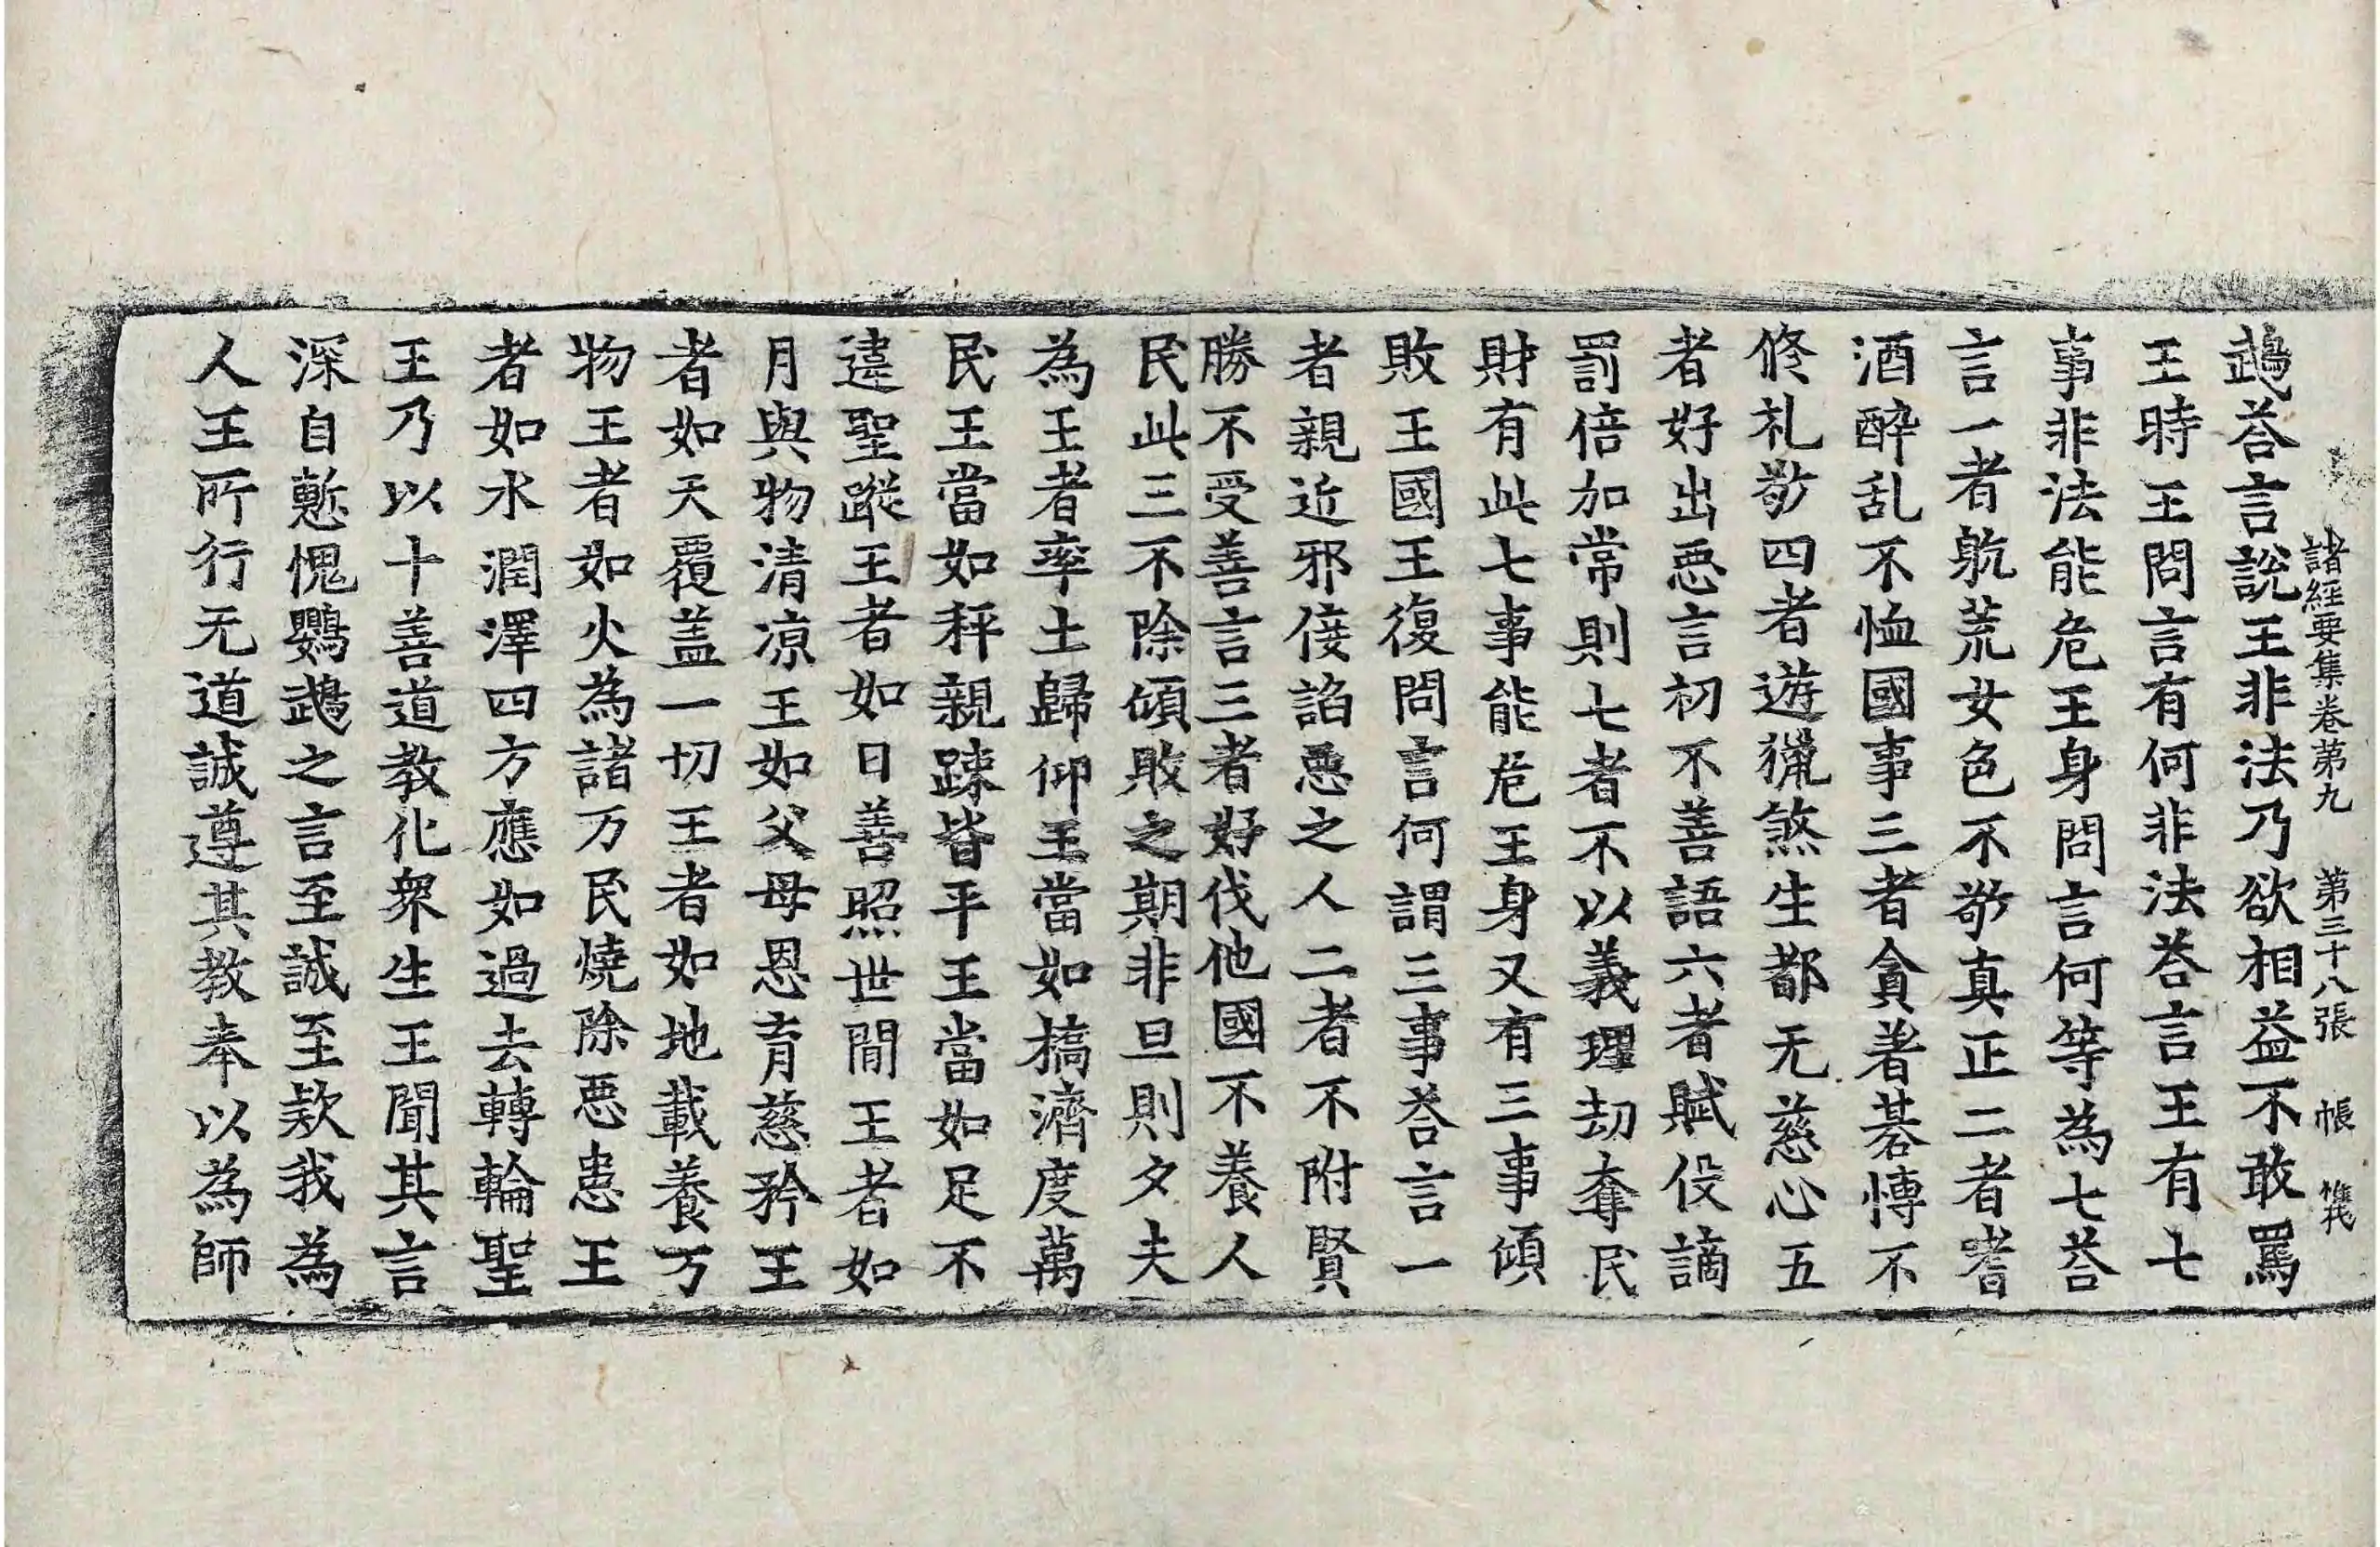 諸經要集卷第九 第三十八張 帳
䳇荅言說王非法乃欲相益不敢罵
王時王問言有何非法荅言王有七
事非法能危王身問言何等為七荅
言一者躭荒女色不敬真正二者嗜
酒醉乱不恤國事三者貪著碁愽不
修礼敬四者遊獵煞生都无慈心五
者好出惡言初不善語六者賦伇謫
罰倍加常則七者不以義理刧奪民
財有此七事能危王身又有三事傾
敗王國王復問言何謂三事荅言一
者親近邪佞諂惡之人二者不附賢
勝不受善言三者好伐他國不養人
民此三不除傾敗之期非旦則夕夫
為王者率土歸仰王當如橋濟度萬
民王當如秤親踈皆平王當如足不
違聖蹤王者如日善照世閒王者如
月與物清凉王如父母恩育慈矜王
者如天覆盖一切王者如地載養万
物王者如火為諸万民燒除惡患王
者如水潤澤四方應如過去轉輪聖
王乃以十善道教化衆生王聞其言
深自慙愧鸚䳇之言至誠至欵我為
人王所行无道誠遵其教奉以為師